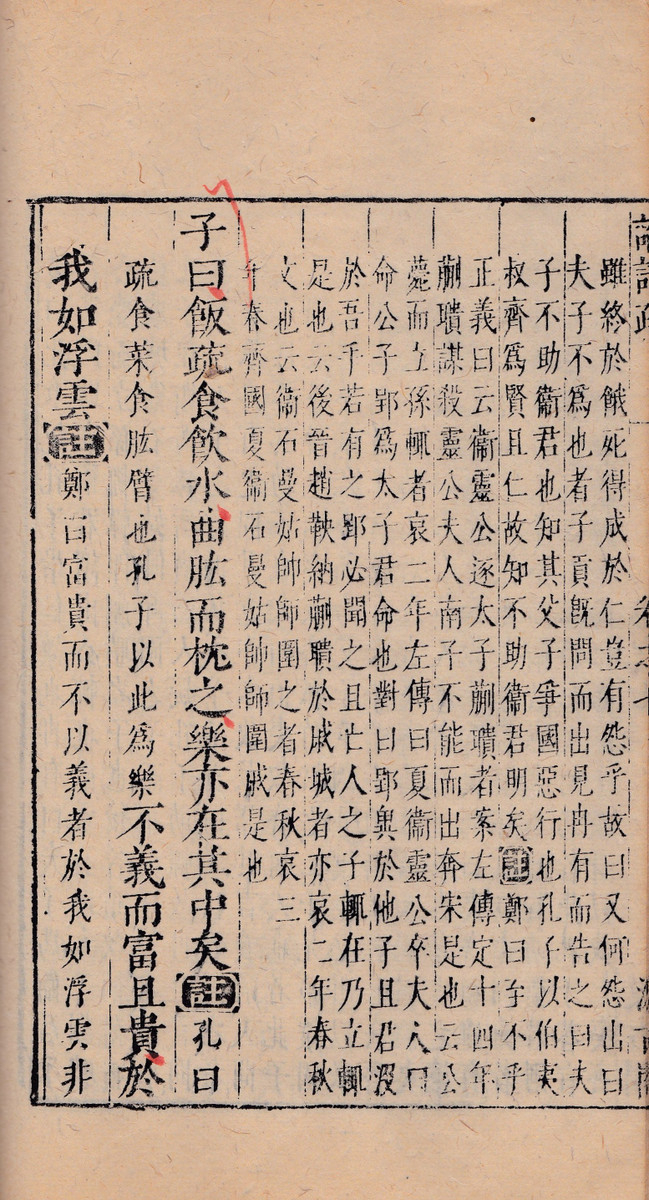 雖終於餓死得成於仁豈有怨乎故曰又何怨出曰
夫子不爲也者子貢旣問而出見冉有而告之曰夫
子不助衞君也知其父子爭國惡行也孔子以伯夷
叔齊爲賢且仁故知不助衞君明矣註鄭曰至不乎
正義曰云衞靈公逐太子蒯聵者案左傳定十四年
蒯聵謀殺靈公夫人南子不能而出奔宋是也云公
薨而立孫輒者哀二年左傳曰夏衞靈公卒夫人曰
命公子郢爲太子君命也對曰郢異於他子且君沒
於吾手若有之郢必聞之且亡人之子輒在乃立輒
是也云後晉趙鞅納蒯聵於戚城者亦哀二年春秋
文也云衞石曼姑帥師圍之者春秋哀三
年春齊國夏衞石曼姑帥師圍戚是也
子曰飯疏食飲水曲肱而枕之樂亦在其中矣註孔曰
疏食菜食肱臂也孔子以此爲樂不義而富且貴於
我如浮雲註鄭曰富貴而不以義者於我如浮雲非